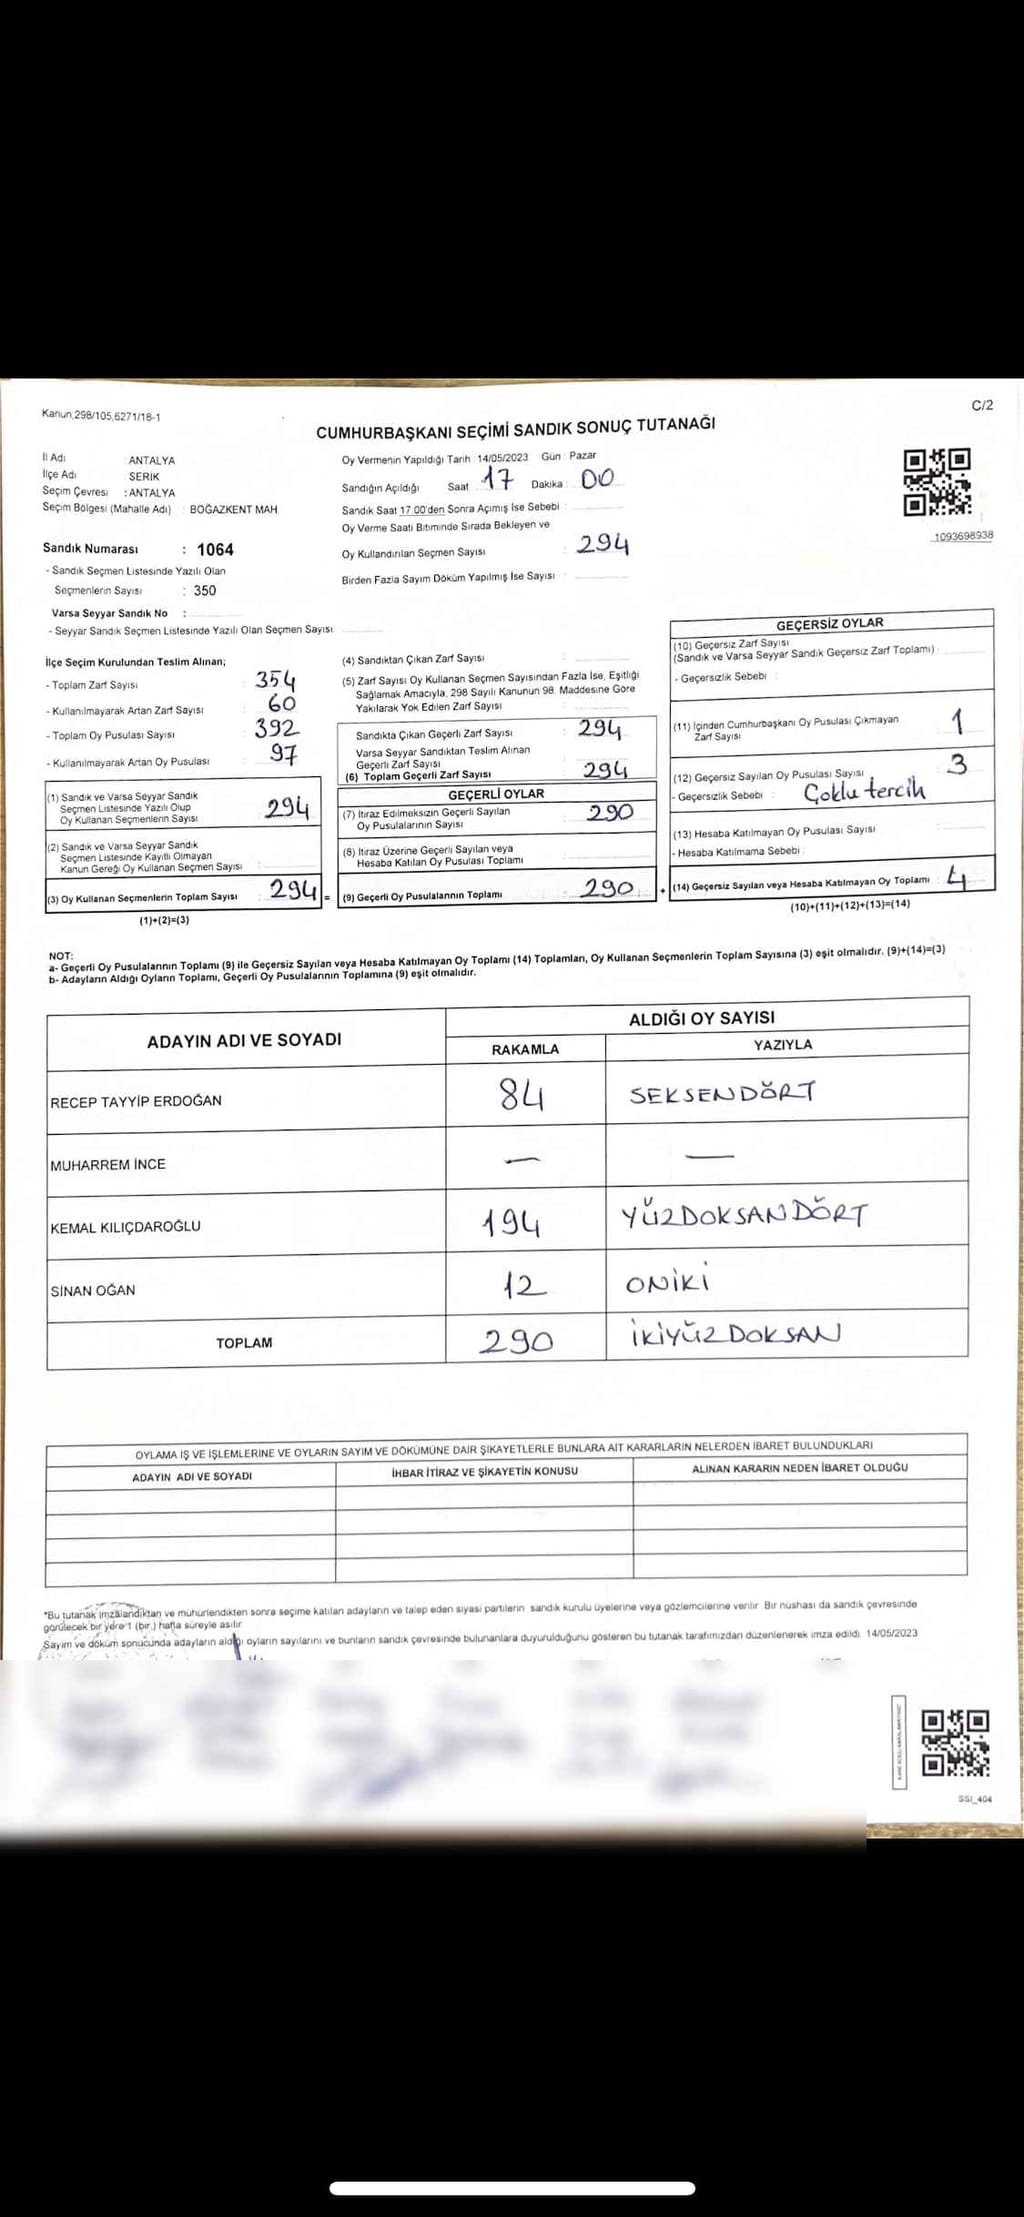 Kanun,298/105,6271/18-1
C/2
CUMHURBAŞKANI SEÇİMİ SANDIK SONUÇ TUTANAĞI
İl Adı ANTALYA
İlçe Adı SERİK
Seçim Çevresi : ANTALYA
Seçim Bölgesi (Mahalle Adı) : BOĞAZKENT MAH
Sandık Numarası : 1064
- Sandık Seçmen Listesinde Yazılı Olan
Seçmenlerin Sayısı : 350
Varsa Seyyar Sandık No :
- Seyyar Sandık Seçmen Listesinde Yazılı Olan Seçmen Sayısı
Oy Vermenin Yapıldığı Tarih : 14/05/2023 Gün : Pazar
Sandığın Açıldığı Saat 17 Dakika : 00
Sandık Saat 17.00'den Sonra Açımış İse Sebebi :
Oy Verme Saati Bitiminde Sırada Bekleyen ve
Oy Kullandırılan Seçmen Sayısı : 294
Birden Fazla Sayım Döküm Yapılmış İse Sayısı :
1093698938
İlçe Seçim Kurulundan Teslim Alınan;
- Toplam Zarf Sayısı : 354
- Kullanılmayarak Artan Zarf Sayısı : 60
- Toplam Oy Pusulası Sayısı : 392
- Kullanılmayarak Artan Oy Pusulası : 97
(1) Sandık ve Varsa Seyyar Sandık
Seçmen Listesinde Yazılı Olup
Oy Kullanan Seçmenlerin Sayısı : 294
(2) Sandık ve Varsa Seyyar Sandık
Seçmen Listesinde Kayıtlı Olmayan
Kanun Gereği Oy Kullanan Seçmen Sayısı :
(3) Oy Kullanan Seçmenlerin Toplam Sayısı : 294 =
(1)+(2)=(3)
(4) Sandıktan Çıkan Zarf Sayısı :
(5) Zarf Sayısı Oy Kullanan Seçmen Sayısından Fazla İse, Eşitliği
Sağlamak Amacıyla, 298 Sayılı Kanunun 98. Maddesine Göre
Yakılarak Yok Edilen Zarf Sayısı :
Sandıkta Çıkan Geçerli Zarf Sayısı : 294
Varsa Seyyar Sandıktan Teslim Alınan
Geçerli Zarf Sayısı
(6) Toplam Geçerli Zarf Sayısı : 294
GEÇERLİ OYLAR
(7) İtiraz Edilmeksizin Geçerli Sayılan
Oy Pusulalarının Sayısı : 290
(8) İtiraz Üzerine Geçerli Sayılan veya
Hesaba Katılan Oy Pusulası Toplamı :
(9) Geçerli Oy Pusulalarının Toplamı : 290 +
GEÇERSİZ OYLAR
(10) Geçersiz Zarf Sayısı
(Sandık ve Varsa Seyyar Sandık Geçersiz Zarf Toplamı) :
- Geçersizlik Sebebi :
(11) İçinden Cumhurbaşkanı Oy Pusulası Çıkmayan
Zarf Sayısı 1
(12) Geçersiz Sayılan Oy Pusulası Sayısı : 3
- Geçersizlik Sebebi : Çoklu tercih
(13) Hesaba Katılmayan Oy Pusulası Sayısı :
- Hesaba Katılmama Sebebi :
(14) Geçersiz Sayılan veya Hesaba Katılmayan Oy Toplamı : 4
(10)+(11)+(12)+(13)=(14)
NOT:
a- Geçerli Oy Pusulalarının Toplamı (9) ile Geçersiz Sayılan veya Hesaba Katılmayan Oy Toplamı (14) Toplamları, Oy Kullanan Seçmenlerin Toplam Sayısına (3) eşit olmalıdır. (9)+(14)=(3)
b- Adayların Aldığı Oyların Toplamı, Geçerli Oy Pusulalarının Toplamına (9) eşit olmalıdır.
ADAYIN ADI VE SOYADI
ALDIĞI OY SAYISI
RAKAMLA YAZIYLA
RECEP TAYYİP ERDOĞAN 84 SEKSENDÖRT
MUHARREM İNCE — —
KEMAL KILIÇDAROĞLU 194 YÜZDOKSANDÖRT
SİNAN OĞAN 12 ONİKİ
TOPLAM 290 İKİYÜZDOKSAN
OYLAMA İŞ VE İŞLEMLERİNE VE OYLARIN SAYIM VE DÖKÜMÜNE DAİR ŞİKAYETLERLE BUNLARA AİT KARARLARIN NELERDEN İBARET BULUNDUKLARI
ADAYIN ADI VE SOYADI İHBAR İTİRAZ VE ŞİKAYETİN KONUSU ALINAN KARARIN NEDEN İBARET OLDUĞU
*Bu tutanak imzalandıktan ve mühürlendikten sonra seçime katılan adayların ve talep eden siyasi partilerin sandık kurulu üyelerine veya gözlemcilerine verilir. Bir nüshası da sandık çevresinde
görülecek bir yere 1 (bir) hafta süreyle asılır
Sayım ve döküm sonucunda adayların aldığı oyların sayılarını ve bunların sandık çevresinde bulunanlara duyurulduğunu gösteren bu tutanak tarafımızdan düzenlenerek imza edildi. 14/05/2023
SSI_404